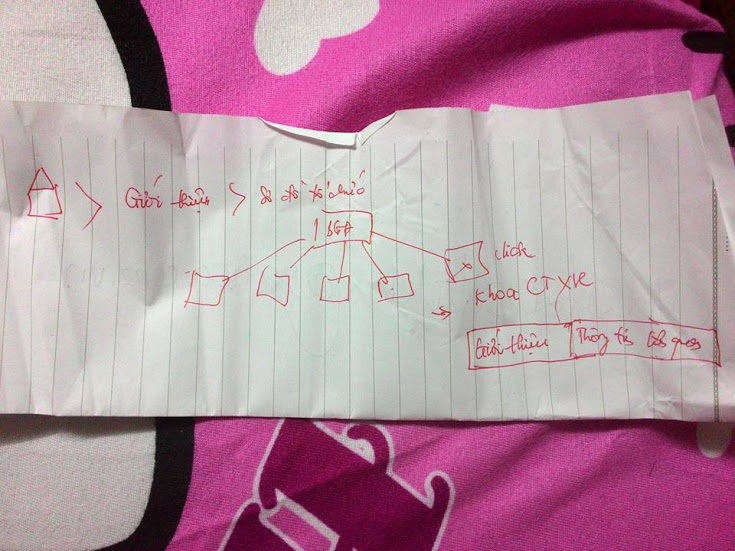 > Giới thiệu > sơ đồ tổ chức
click
Khoa CTXH
Giới thiệu Thông tin liên quan